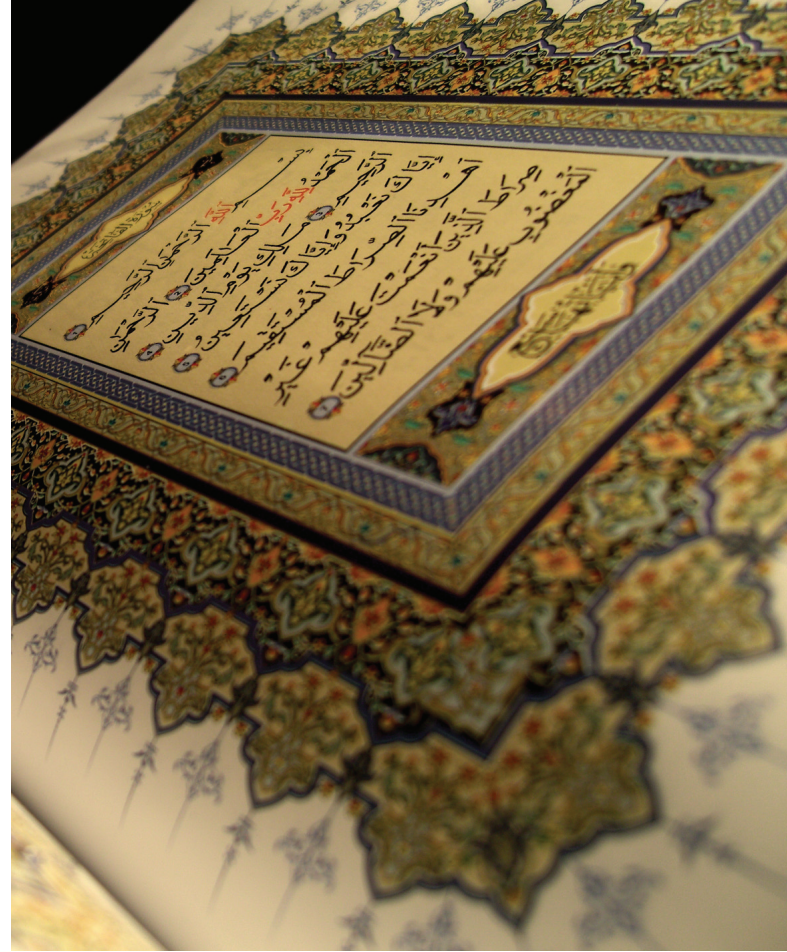 بِسْمِ اللَّهِ الرَّحْمَٰنِ الرَّحِيمِ
الْحَمْدُ لِلَّهِ رَبِّ الْعَالَمِينَ الرَّحْمَٰنِ
الرَّحِيمِ مَالِكِ يَوْمِ الدِّينِ
إِيَّاكَ نَعْبُدُ وَإِيَّاكَ نَسْتَعِينُ
اهْدِنَا الصِّرَاطَ الْمُسْتَقِيمَ
صِرَاطَ الَّذِينَ أَنْعَمْتَ عَلَيْهِمْ غَيْرِ
الْمَغْضُوبِ عَلَيْهِمْ وَلَا الضَّالِّينَ